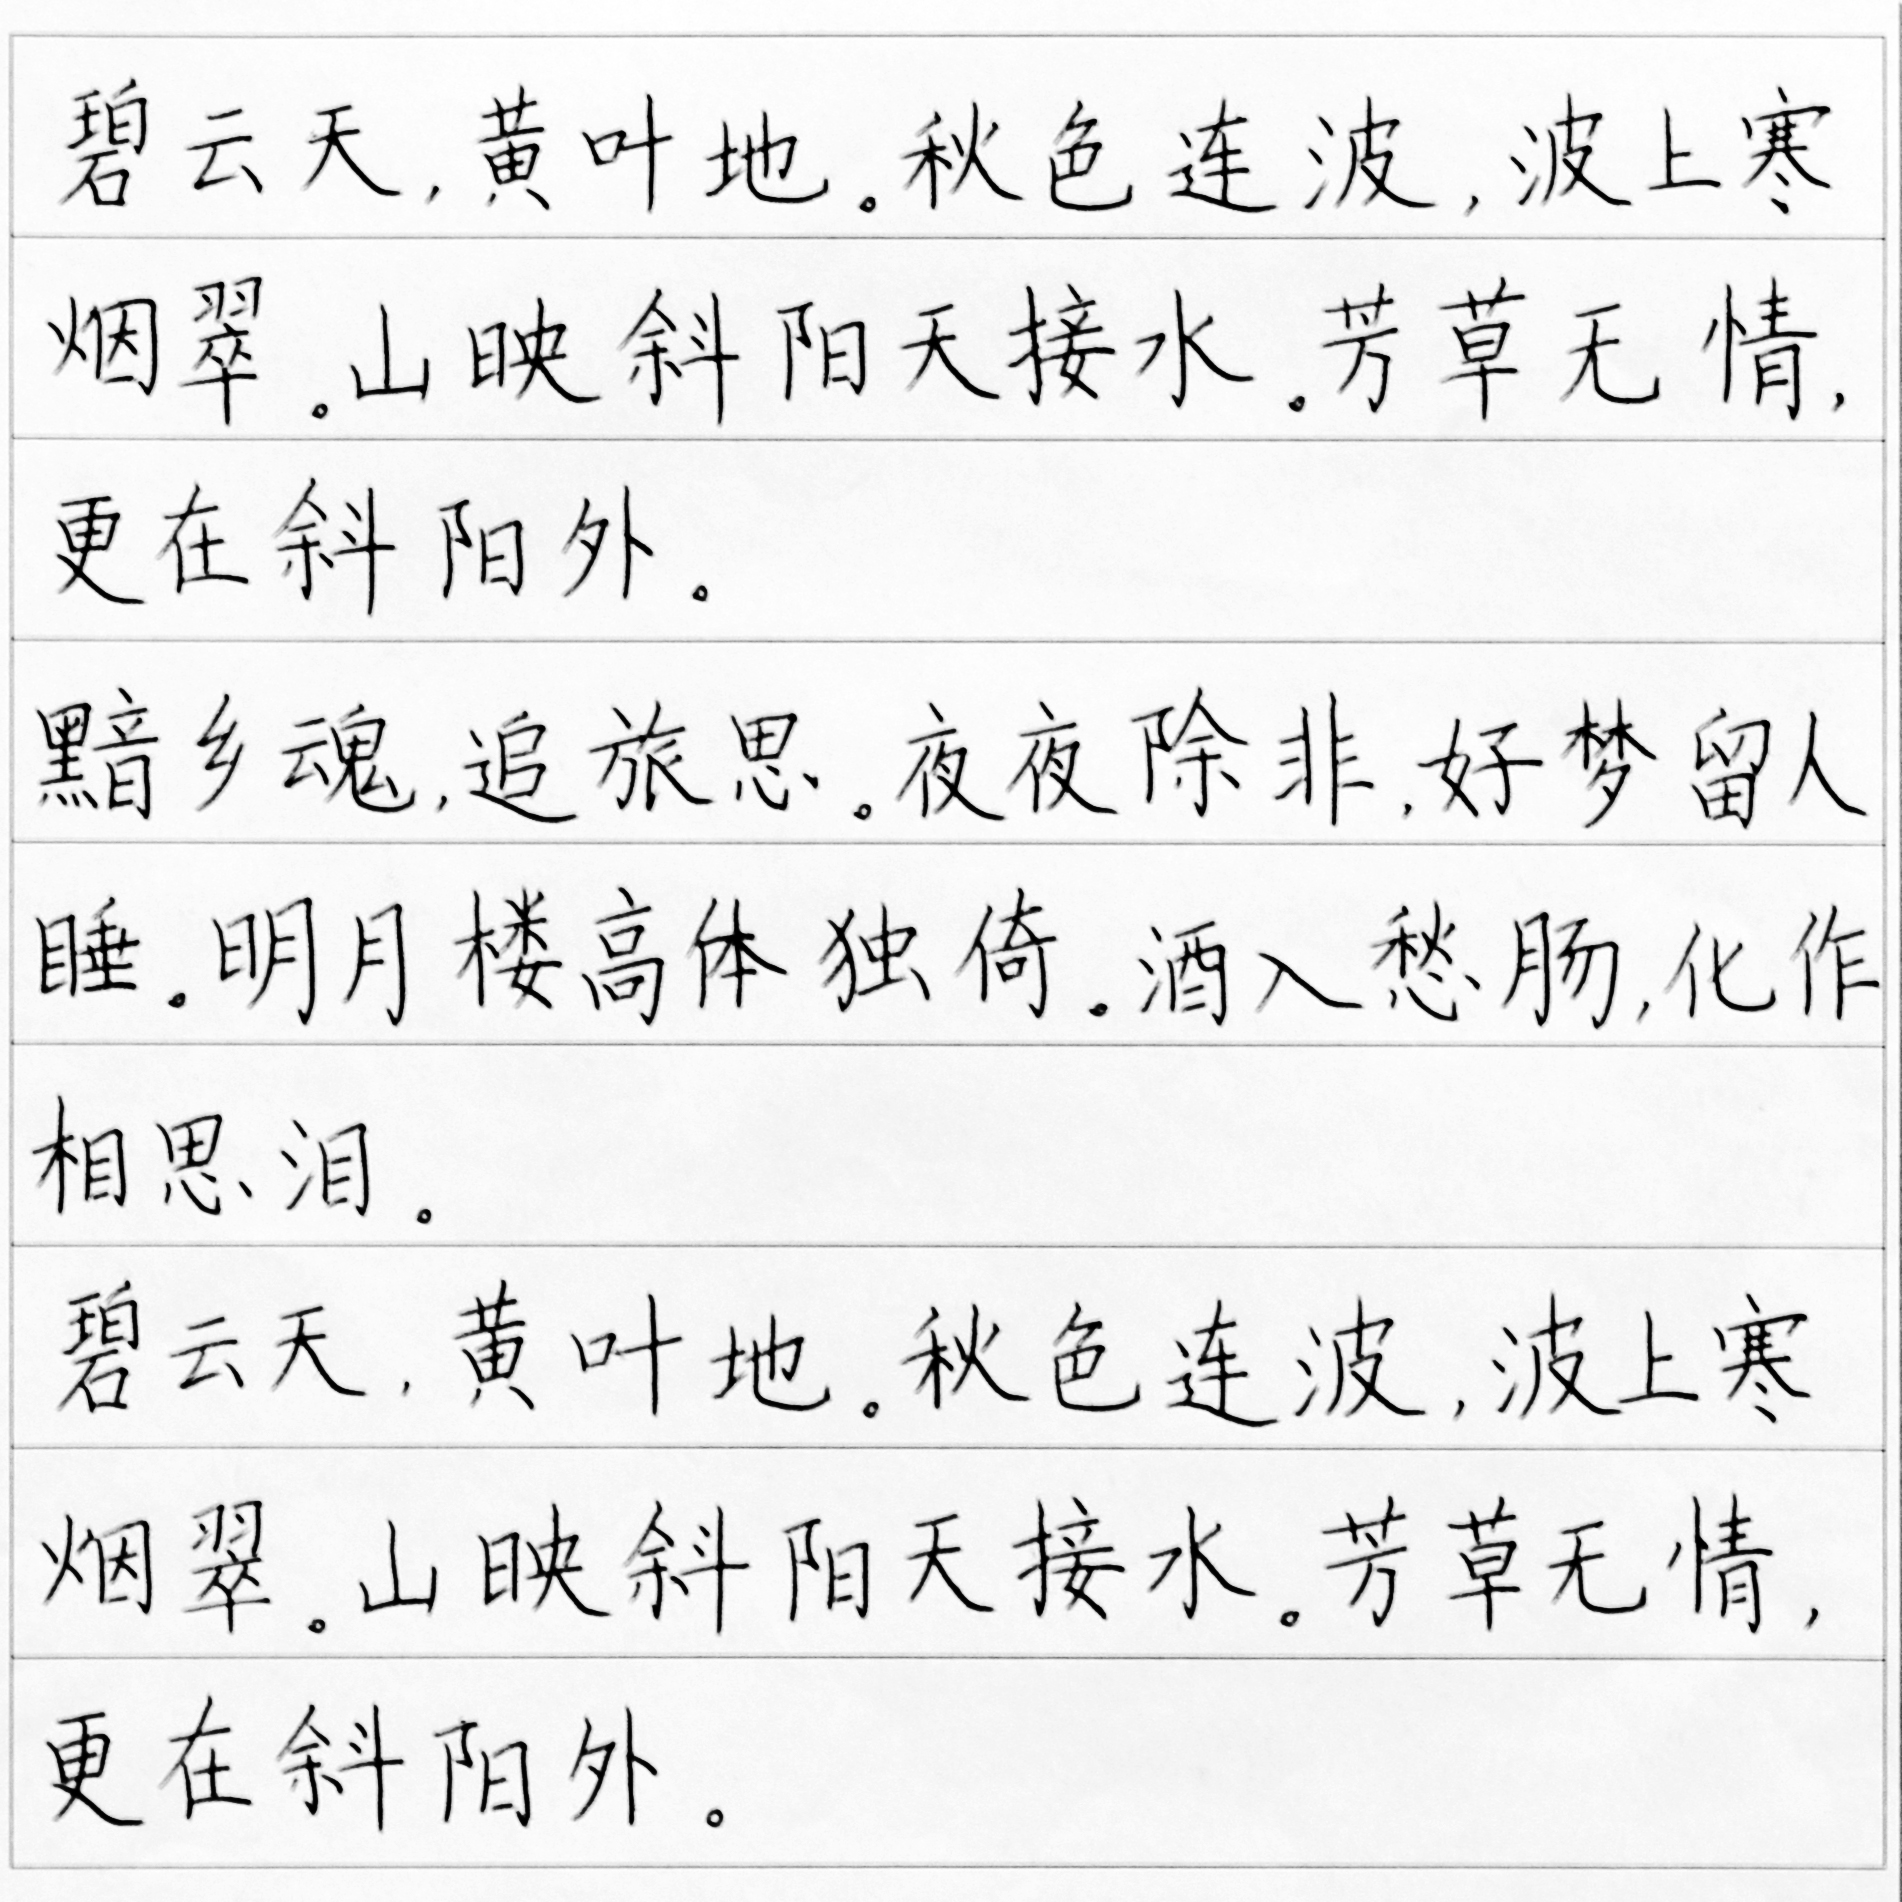 碧云天，黄叶地。秋色连波，波上寒
烟翠。山映斜阳天接水。芳草无情，
更在斜阳外。
黯乡魂，追旅思。夜夜除非，好梦留人
睡。明月楼高体独倚。酒入愁肠，化作
相思泪。
碧云天，黄叶地。秋色连波，波上寒
烟翠。山映斜阳天接水。芳草无情，
更在斜阳外。